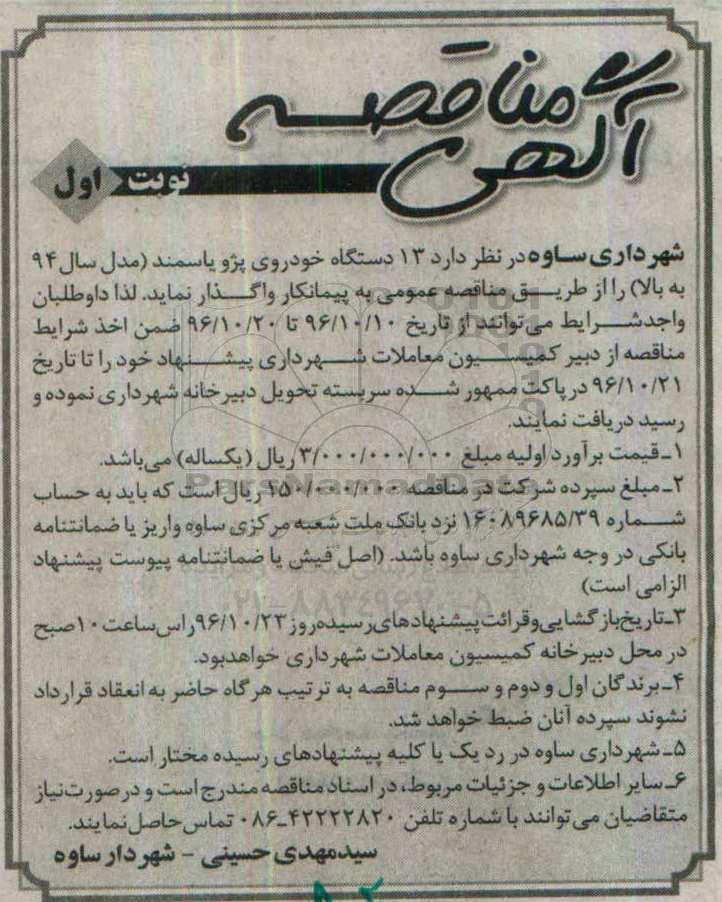 آگهی مناقصه
نوبت اول
شهرداری ساوه در نظر دارد ۱۳ دستگاه خودروی پژو یاسمند (مدل سال ۹۴
به بالا) را از طریق مناقصه عمومی به پیمانکار واگذار نماید. لذا داوطلبان
واجدشرایط می‌توانند از تاریخ ۹۶/۱۰/۱۰ تا ۹۶/۱۰/۲۰ ضمن اخذ شرایط
مناقصه از دبیر کمیسیون معاملات شهرداری پیشنهاد خود را تا تاریخ
۹۶/۱۰/۲۱ در پاکت ممهور شده سربسته تحویل دبیرخانه شهرداری نموده و
رسید دریافت نمایند.
۱ـ قیمت برآورد اولیه مبلغ ۳/۰۰۰/۰۰۰/۰۰۰ ریال (یکساله) می‌باشد.
۲ـ مبلغ سپرده شرکت در مناقصه ۱۵۰/۰۰۰/۰۰۰ ریال است که باید به حساب
شماره ۱۶۰۸۹۶۸۵/۳۹ نزد بانک ملت شعبه مرکزی ساوه واریز یا ضمانتنامه
بانکی در وجه شهرداری ساوه باشد. (اصل فیش یا ضمانتنامه پیوست پیشنهاد
الزامی است)
۳ـ تاریخ بازگشایی و قرائت پیشنهادهای رسیده روز ۹۶/۱۰/۲۳ راس ساعت ۱۰ صبح
در محل دبیرخانه کمیسیون معاملات شهرداری خواهدبود.
۴ـ برندگان اول و دوم و سوم مناقصه به ترتیب هرگاه حاضر به انعقاد قرارداد
نشوند سپرده آنان ضبط خواهد شد.
۵ـ شهرداری ساوه در رد یک یا کلیه پیشنهادهای رسیده مختار است.
۶ـ سایر اطلاعات و جزئیات مربوط، در اسناد مناقصه مندرج است و در صورت نیاز
متقاضیان می‌توانند با شماره تلفن ۴۲۲۲۲۸۲۰ـ۰۸۶ تماس حاصل نمایند.
سیدمهدی حسینی - شهردار ساوه
ParsNamadData
۰۲۱-۸۸۳۴۹۶۷۰-۵